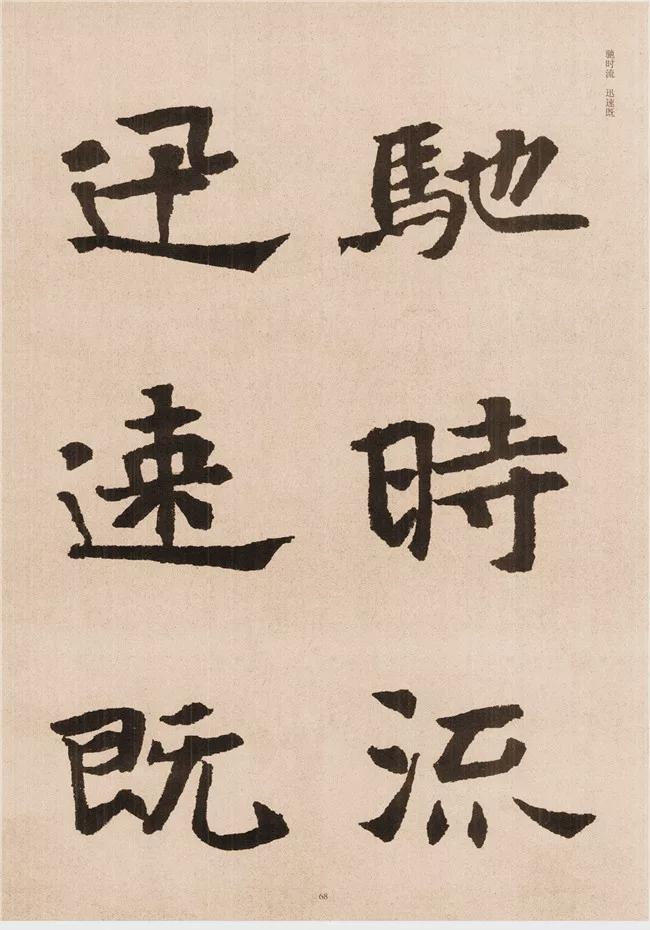 驰时流 迅速既
馳時流
迅速既
68